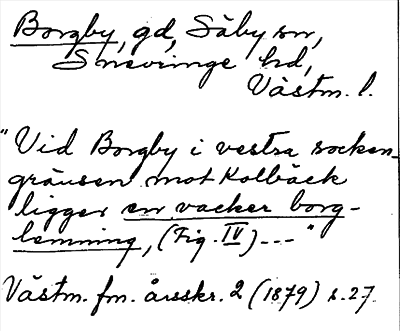 Borgby, gd, Säby sn,
Snevringe hd,
Västm. l.
"Vid Borgby i vestra socken-
gränsen mot Kolbäck
ligger en vacker borg-
lemning, (Fig. IV) ---"
Västm. fm. årsskr. 2 (1879) s. 27.